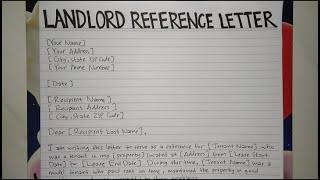 LANDLORD REFERENCE LETTER
[Your Name]
[Your Address]
[City, State ZIP Code]
[Your Phone Number]
[Date]
[Recipient Name]
[Recipient Address]
[City, State ZIP Code]
Dear [Recipient Last Name],
I am writing this letter to serve as a reference for [Tenant Name] who
was a tenant in my [property] located at [Address] from [Lease Start
Date] to [Lease End Date]. During that time, [Tenant Name] was a
model tenant who paid rent on time, maintained the property in good